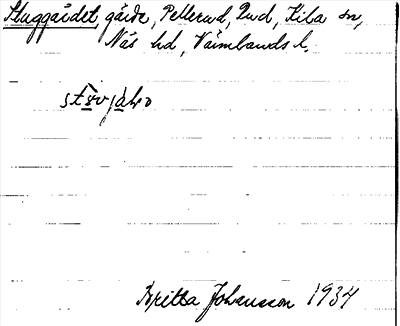 Stuggärdet, gärde, Pellerud, Rud, Kila sn,
Näs hd, Värmlands l.
Britta Johansson 1934